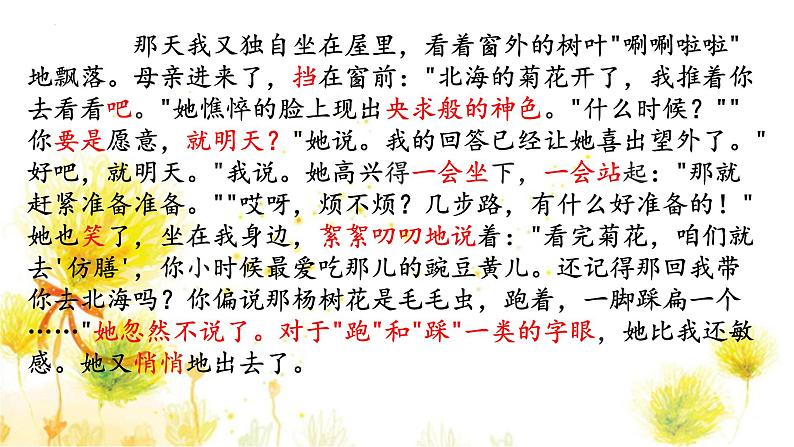 那天我又独自坐在屋里，看着窗外的树叶"唰唰啦啦"
地飘落。母亲进来了，挡在窗前："北海的菊花开了，我推着你
去看看吧。"她憔悴的脸上现出央求般的神色。"什么时候？""
你要是愿意，就明天？"她说。我的回答已经让她喜出望外了。"
好吧，就明天。"我说。她高兴得一会坐下，一会站起："那就
赶紧准备准备。""哎呀，烦不烦？几步路，有什么好准备的！"
她也笑了，坐在我身边，絮絮叨叨地说着："看完菊花，咱们就
去'仿膳'，你小时候最爱吃那儿的豌豆黄儿。还记得那回我带
你去北海吗？你偏说那杨树花是毛毛虫，跑着，一脚踩扁一个
……"她忽然不说了。对于"跑"和"踩"一类的字眼，她比我还敏
感。她又悄悄地出去了。